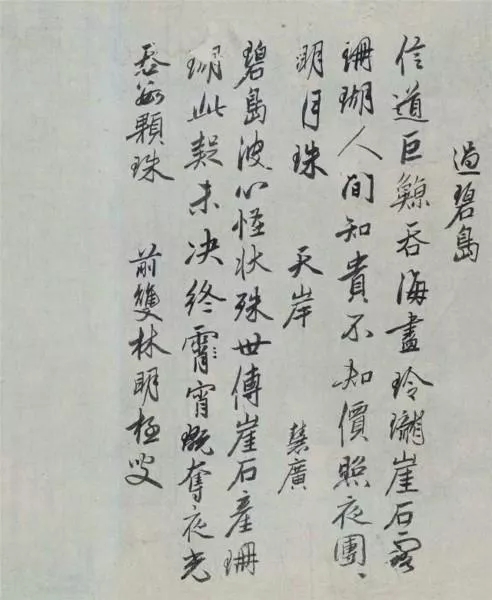 過碧島
信道巨鯨吞海盡玲瓏崖石露
珊瑚人間知貴不知價照夜團、
明月珠 天岸 慧廣
碧島波心怪状殊世傳崖石產珊
瑚此疑未决終霄宵既奪夜光
吞幾顆珠 前雙林明極叟